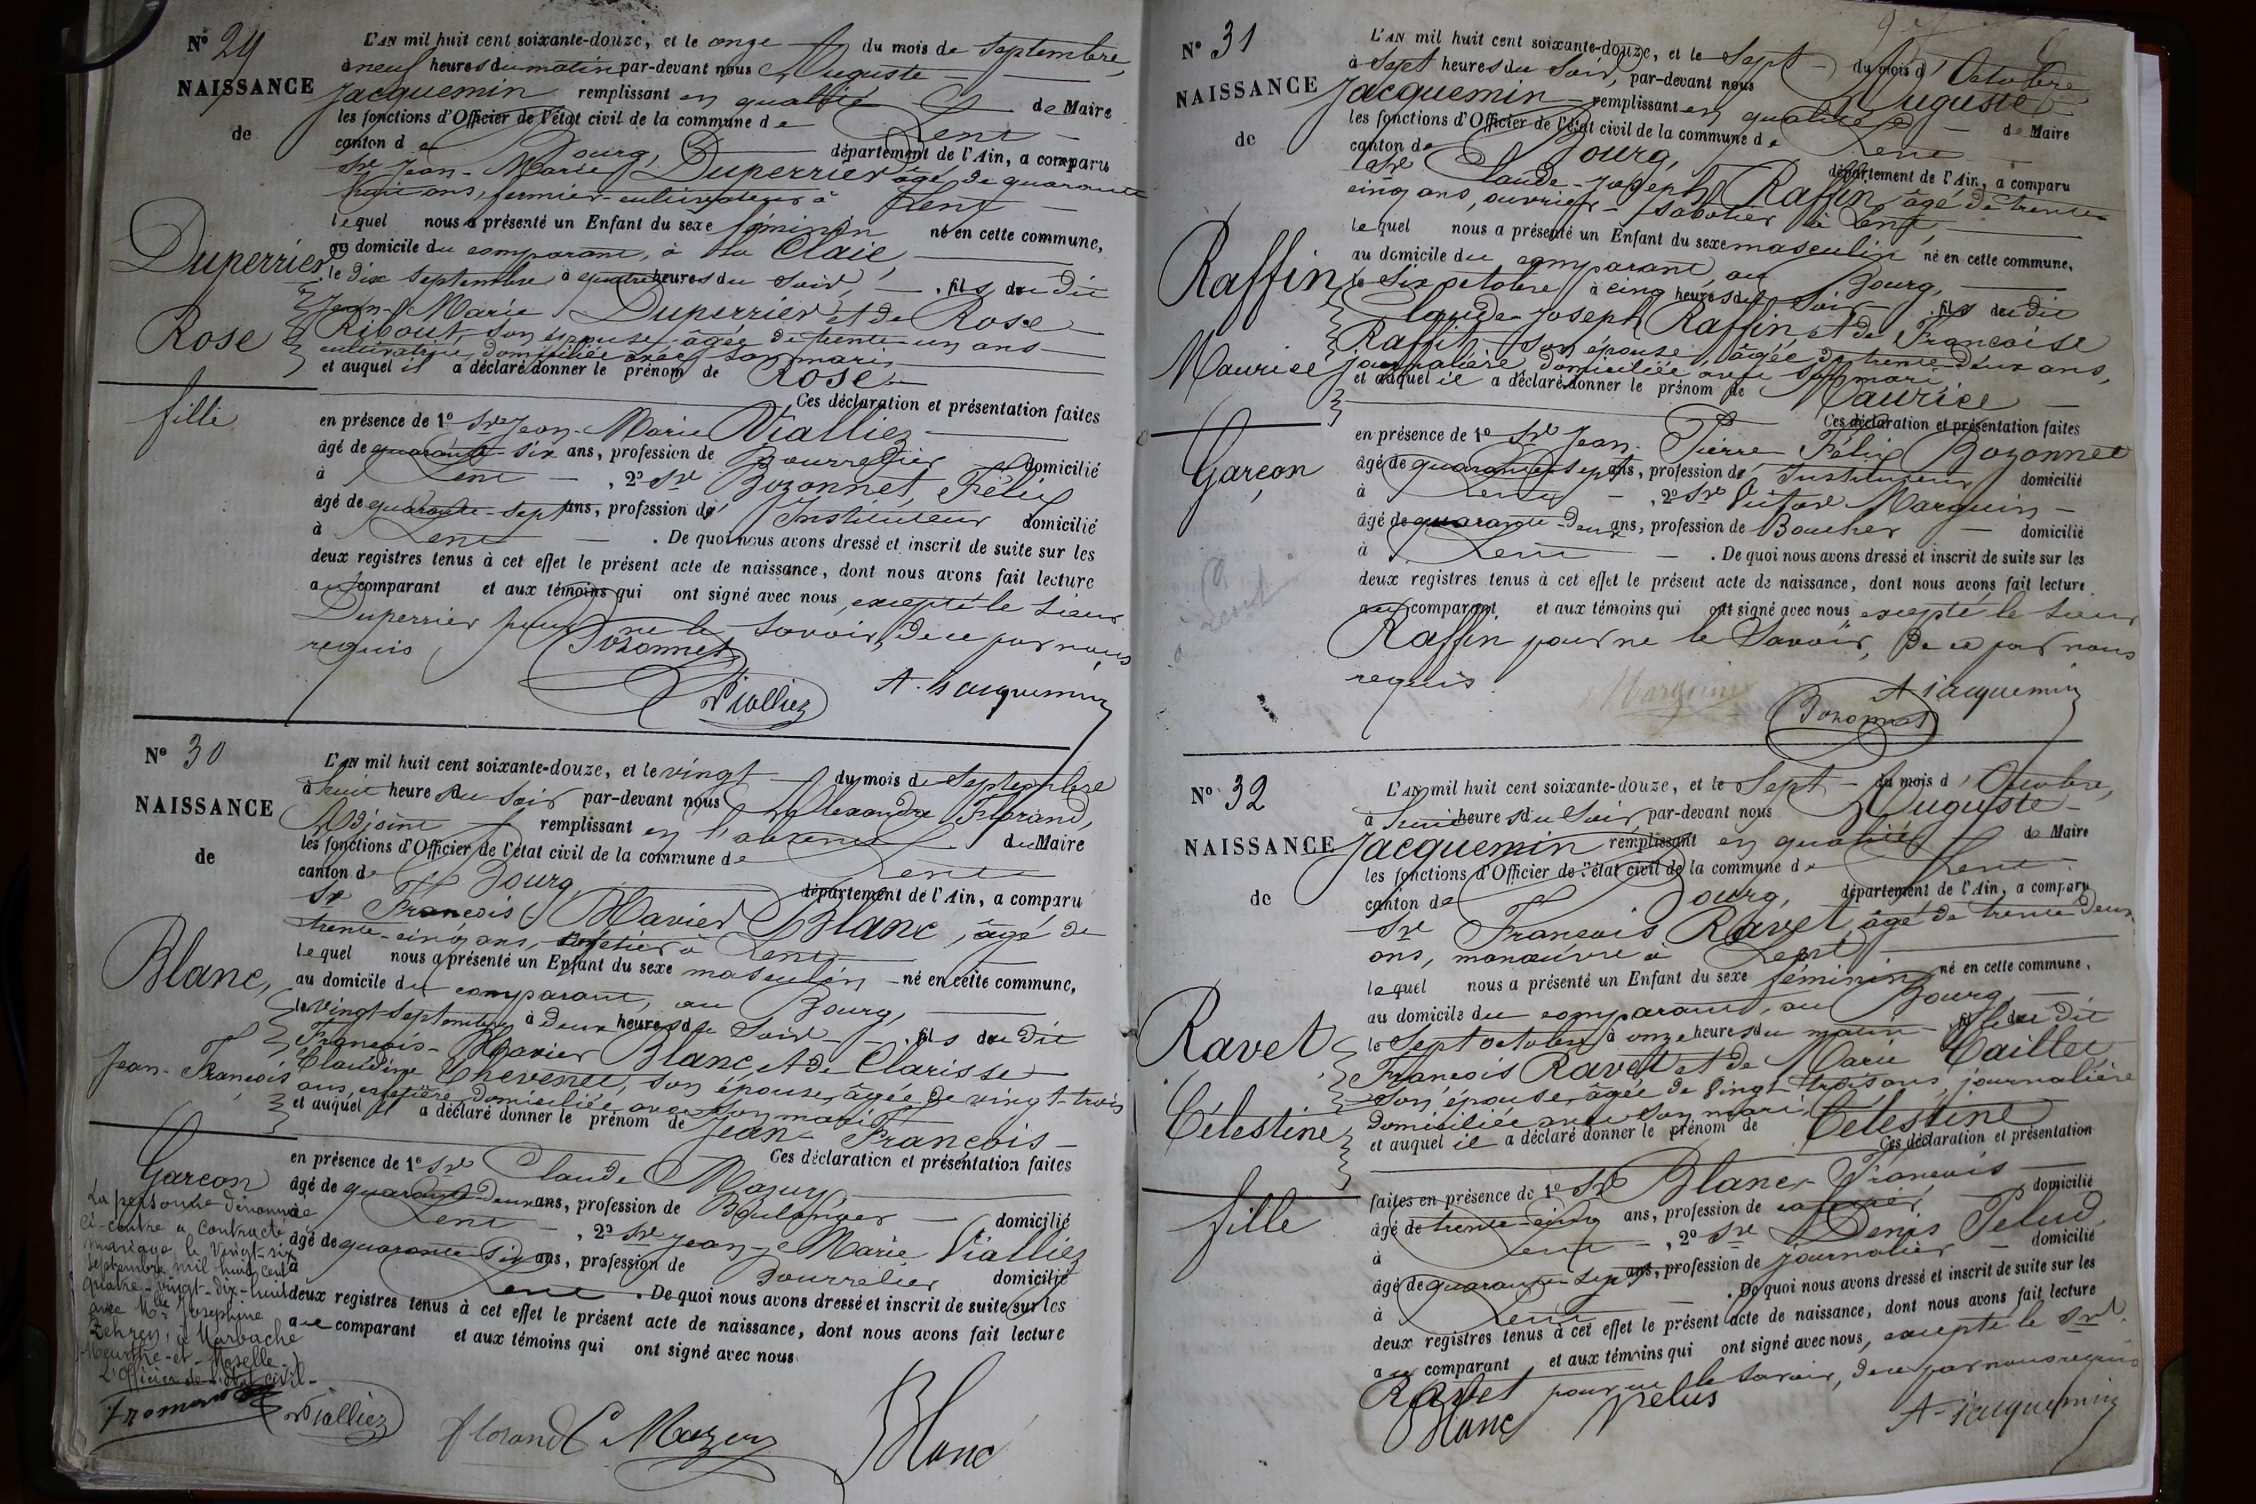 Nº 29
NAISSANCE
de
Duperrier
Rose
fille
L'AN mil huit cent soixante-douze, et le onze du mois de Septembre,
à neuf heures du matin par-devant nous Auguste
Jacquemin remplissant en qualité de Maire
les fonctions d'Officier de l'état civil de la commune de Lent
canton de Bourg, département de l'Ain, a comparu
Sr Jean-Marie Duperrier âgé de quarante
huit ans, fermier-cultivateur à Lent
lequel nous a présenté un Enfant du sexe féminin né en cette commune,
au domicile du comparant, à la Claie,
le dix Septembre à quatre heures du soir, fils du dit
Jean-Marie Duperrier et de Rose
Ribout, son épouse, âgée de trente un ans
cultivatrice, domiciliée avec son mari,
et auquel il a déclaré donner le prénom de Rose
Ces déclaration et présentation faites
en présence de 1º Sr Jean-Marie Vialliez
âgé de quarante-six ans, profession de Bourrelier domicilié
à Lent, 2º Sr Bozonnet, Félix
âgé de quarante-sept ans, profession d'Instituteur domicilié
à Lent. De quoi nous avons dressé et inscrit de suite sur les
deux registres tenus à cet effet le présent acte de naissance, dont nous avons fait lecture
au comparant et aux témoins qui ont signé avec nous excepté le Sieur
Duperrier pour ne le savoir, de ce par nous
requis
Bozonnet
Vialliez A. Jacquemin
Nº 30
NAISSANCE
de
Blanc,
Jean-François
Garçon
La personne dénommée
ci-contre a contracté
mariage le vingt-six
septembre mil huit cent
quatre-vingt-dix-huit
avec Mlle Josephine
Zehren, à Marbache
Meurthe-et-Moselle
L'Officier de l'état civil
L'AN mil huit cent soixante-douze, et le vingt du mois de Septembre
à huit heures du soir par-devant nous Alexandre Florand,
Adjoint remplissant en l'absence du Maire
les fonctions d'Officier de l'état civil de la commune de Lent
canton de Bourg département de l'Ain, a comparu
Sr François-Xavier Blanc, âgé de
trente-cinq ans, cafetier à Lent
lequel nous a présenté un Enfant du sexe masculin né en cette commune,
au domicile du comparant, au Bourg,
le vingt Septembre à deux heures du soir fils du dit
François-Xavier Blanc, et de Clarisse
Claudine Chevenet, son épouse, âgée de vingt-trois
ans, cafetière, domiciliée avec son mari
et auquel il a déclaré donner le prénom de Jean-François
Ces déclaration et présentation faites
en présence de 1º Sr Claude Mazuy
âgé de quarante-deux ans, profession de Boulanger domicilié
à Lent, 2º Sr Jean-Marie Vialliez
âgé de quarante-six ans, profession de Bourrelier domicilié
à Lent. De quoi nous avons dressé et inscrit de suite sur les
deux registres tenus à cet effet le présent acte de naissance, dont nous avons fait lecture
au comparant et aux témoins qui ont signé avec nous
Vialliez Florand C Mazuy Blanc
Nº 31
NAISSANCE
de
Raffin
Maurice
Garçon
L'AN mil huit cent soixante-douze, et le Sept du mois d'Octobre
à Sept heures du soir, par-devant nous Auguste
Jacquemin remplissant en qualité de Maire
les fonctions d'Officier de l'état civil de la commune de Lent
canton de Bourg, département de l'Ain, a comparu
Sr Claude-Joseph Raffin, âgé de trente
cinq ans, ouvrier-sabotier à Lent,
lequel nous a présenté un Enfant du sexe masculin né en cette commune,
au domicile du comparant, au Bourg,
le Six octobre à cinq heures du soir fils du dit
Claude-Joseph Raffin, et de Françoise
Raffit son épouse, âgée de trente-deux ans,
journalière domiciliée avec son mari,
et auquel il a déclaré donner le prénom de Maurice
Ces déclaration et présentation faites
en présence de 1º Sr Jean-Pierre Félix Bozonnet
âgé de quarante sept ans, profession d'Instituteur domicilié
à Lent, 2º Sr Victor Marguin
âgé de quarante-deux ans, profession de Boucher domicilié
à Lent. De quoi nous avons dressé et inscrit de suite sur les
deux registres tenus à cet effet le présent acte de naissance, dont nous avons fait lecture
au comparant et aux témoins qui ont signé avec nous excepté le Sieur
Raffin pour ne le savoir, de ce par nous
requis.
Marguin A Jacquemin
Bozonnet
Nº 32
NAISSANCE
de
Ravet
Célestine
fille
L'AN mil huit cent soixante-douze, et le Sept du mois d'Octobre,
à huit heures du soir par-devant nous Auguste
Jacquemin remplissant en qualité de Maire
les fonctions d'Officier de l'état civil de la commune de Lent
canton de Bourg, département de l'Ain, a comparu
Sr François Ravet, âgé de trente deux
ans, manœuvre à Lent
lequel nous a présenté un Enfant du sexe féminin né en cette commune,
au domicile du comparant, au Bourg,
le Sept octobre à onze heures du matin fille du dit
François Ravet et de Marie Caillet
son épouse, âgée de vingt-trois ans, journalière
domiciliée avec son mari,
et auquel il a déclaré donner le prénom de Célestine
Ces déclaration et présentation
faites en présence de 1º Sr Blanc François
âgé de trente-cinq ans, profession de cafetier, domicilié
à Lent, 2º Sr Denis Pelud,
âgé de quarante sept ans, profession de journalier domicilié
à Lent. De quoi nous avons dressé et inscrit de suite sur les
deux registres tenus à cet effet le présent acte de naissance, dont nous avons fait lecture
au comparant et aux témoins qui ont signé avec nous, excepté le Sr
Ravet pour ne le savoir, de ce par nous requis
Blanc Pelus A. Jacquemin